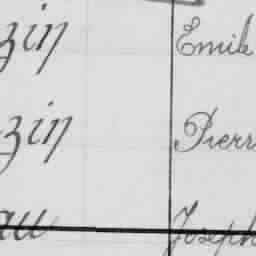 zin Emile
zin Pierr
au Joseph